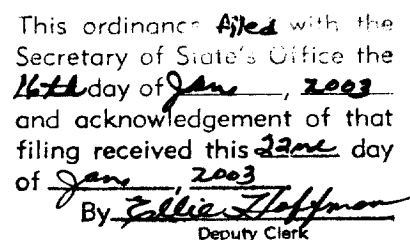 This ordinance filed with the
Secretary of State's Office the
16th day of Jan, 2003
and acknowledgement of that
filing received this 22nd day
of Jan, 2003
By Ellie Hoffman
Deputy Clerk